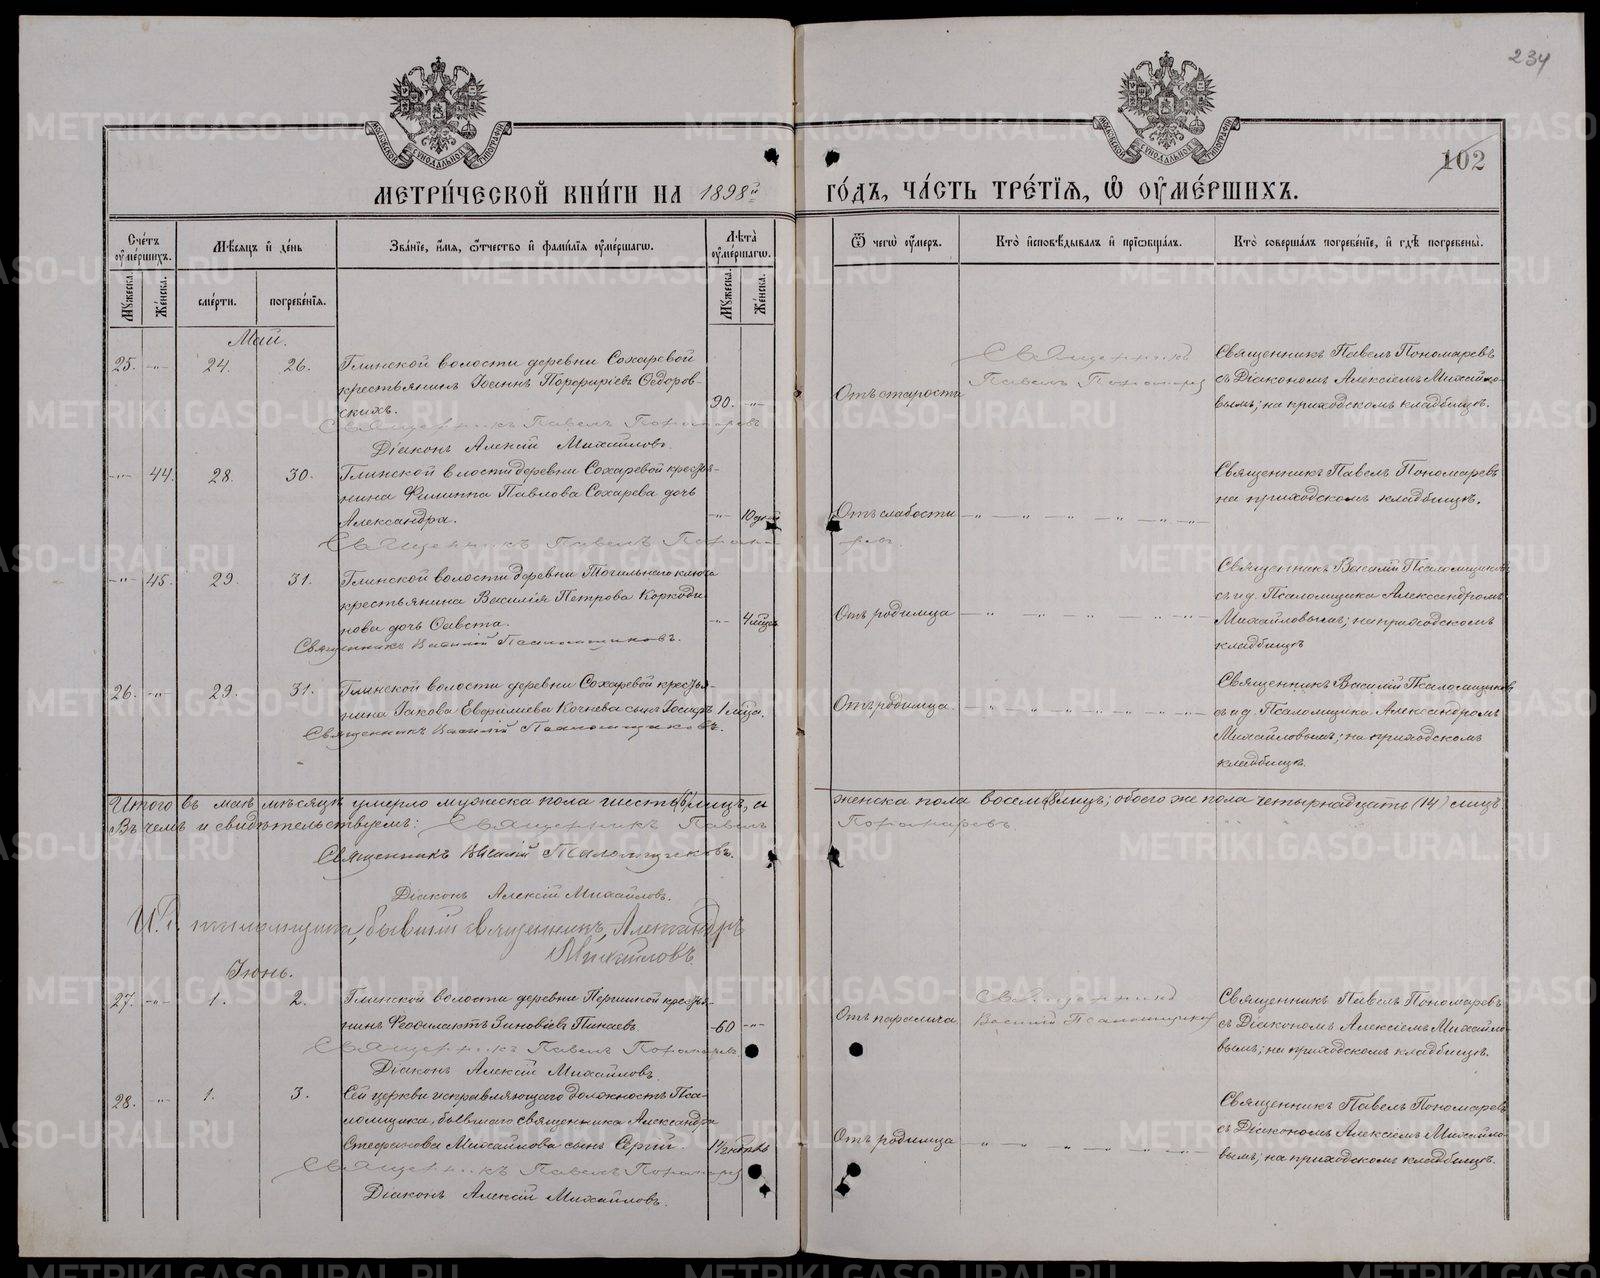 234
102
МОСКОВСКОЙ СѴНОДАЛЬНОЙ ТИПОГРАФІИ
МОСКОВСКОЙ СѴНОДАЛЬНОЙ ТИПОГРАФІИ
МЕТРИ́ЧЕСКОЙ КНИ́ГИ НА 1898й
ГО́ДЪ, ЧА́СТЬ ТРЕ́ТІѦ, Ѡ ОУМЕ́РШИХЪ.
Счетъ оумершихъ.
Мѣсяцъ и день
Званіе, имя, ѿтчество и фамилія оумершагω.
Лѣта оумершагω.
Мужеска. Женска.
смерти. погребенія.
Мужеска. Женска.
Ѿ чегω оумеръ.
Кто исповѣдывалъ и пріωбщалъ.
Кто совершалъ погребеніе, и гдѣ погребены.
Май.
25. -"- 24. 26. Глинской волости деревни Сохаревой
крестьянинъ Іоаннъ Порфиріевъ Ѳедоров-
скихъ. 90. -"-
Священникъ Павелъ Пономаревъ
Діаконъ Алексій Михайловъ.
Отъ старости
Священникъ
Павелъ Пономарев
Священникъ Павелъ Пономаревъ
съ Діакономъ Алексіемъ Михайло-
вымъ; на приходскомъ кладбищѣ.
-"- 44. 28. 30. Глинской влости деревни Сохаревой крестья-
нина Филиппа Павлова Сохарева дочь
Александра. -"- 10 дней
Священникъ Павелъ Понома-
ревъ.
Отъ слабости
Священникъ Павелъ Пономаревъ
на приходскомъ кладбищѣ.
-"- 45. 29. 31. Глинской волости деревни Точильнаго ключа
крестьянина Василія Петрова Коркоди-
нова дочь Ѳавста. -"- 4 мѣсяц
Священникъ Василій Псаломщиковъ.
Отъ родимца
Священникъ Василій Псаломщиков
съ и д. Псаломщика Александромъ
Михайловымъ; на приходскомъ
кладбищѣ
26. -"- 29. 31. Глинской волости деревни Сохаревой крестья-
нина Іакова Евфимиева Кочнева сынъ Іосифъ 1 мѣсца.
Священникъ Василій Псаломщиковъ.
Отъ родимца.
Священникъ Василій Псаломщиков
съ и д. Псаломщика Александромъ
Михайловымъ; на приходскомъ
кладбищѣ.
Итого въ маѣ мѣсяцѣ умерло мужеска пола шесть (6) лицъ, а
женска пола восемь (8) лицъ; обоего же пола четырнадцать (14) лицъ
Въ чемъ и свидѣтельствуемъ: Священникъ Павелъ
Пономаревъ.
Священникъ Василій Псаломщиковъ.
Діаконъ Алексій Михайловъ.
И. д. псаломщика, бывшій священникъ, Александръ
Михайловъ.
Іюнь.
27. -"- 1. 2. Глинской волости деревни Першиной крестья-
нинъ Феофилактъ Зиновіевъ Пинаевъ. 60 -"-
Священникъ Павелъ Пономаревъ.
Діаконъ Алексій Михайловъ.
Отъ паралича
Священникъ
Василій Псаломщиков
Священникъ Павелъ Пономаревъ
съ Діакономъ Алексіемъ Михайло-
вымъ; на приходскомъ кладбищѣ.
28. -"- 1. 3. Сей церкви исправляющаго должность Пса-
ломщика, бывшаго священника Александра
Стефанова Михайлова сынъ Сергій.
Священникъ Павелъ Пономарев
Діаконъ Алексій Михайловъ.
Отъ родимца
Священникъ Павелъ Пономаревъ
съ Діакономъ Алексіемъ Михайло-
вымъ; на приходскомъ кладбищѣ.
METRIKI.GASO-URAL.RU